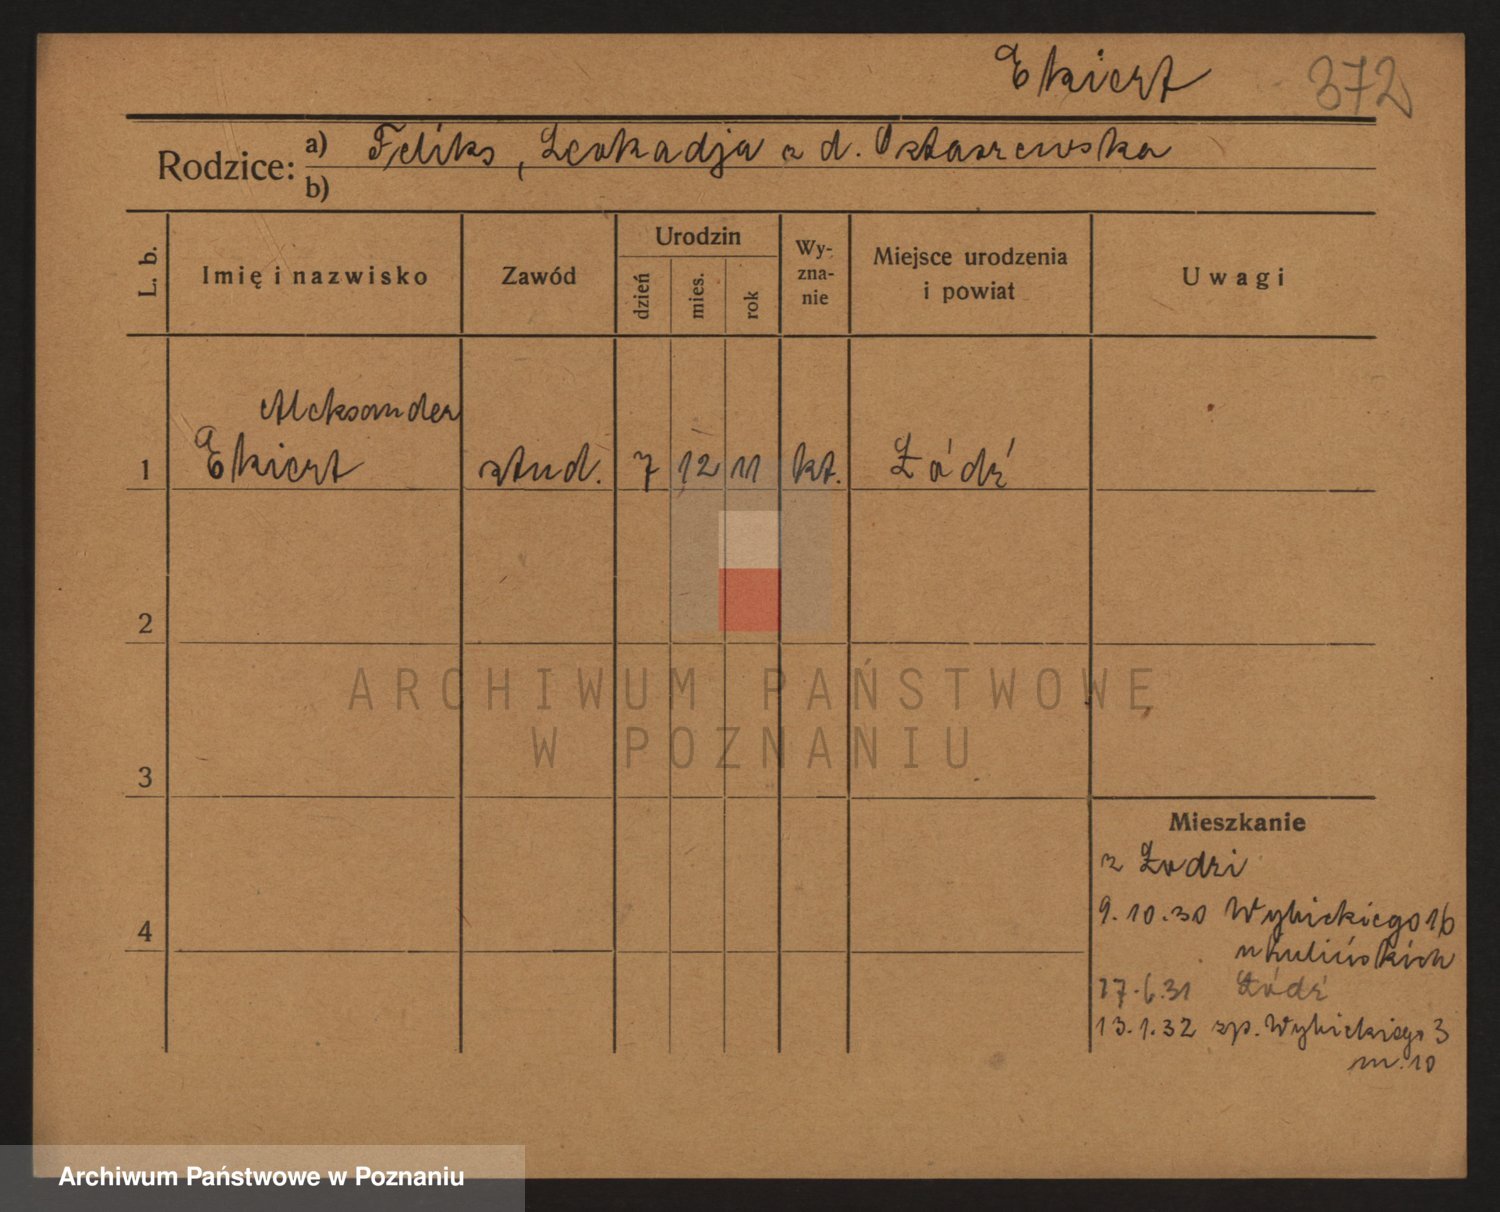 Ekiert 372
Rodzice: a) Feliks, Leokadja z d. Osztaszewska
b)
L. b. Imię i nazwisko Zawód Urodzin dzień mies. rok Wy-zna-nie Miejsce urodzenia i powiat Uwagi
Aleksander
1 Ekiert stud. 7 12 11 kt. Łódź
2
ARCHIWUM PAŃSTWOWE
W POZNANIU
3
Mieszkanie
z Łodzi
4 9.10.30 Wybickiego 16
17.6.31 Łódź
13.1.32 zp. Wybickiego 3
m. 10
Archiwum Państwowe w Poznaniu